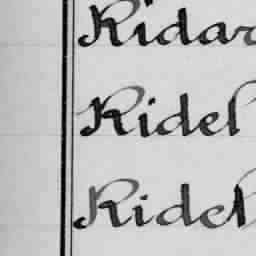 Ridar
Ridel
Ridel